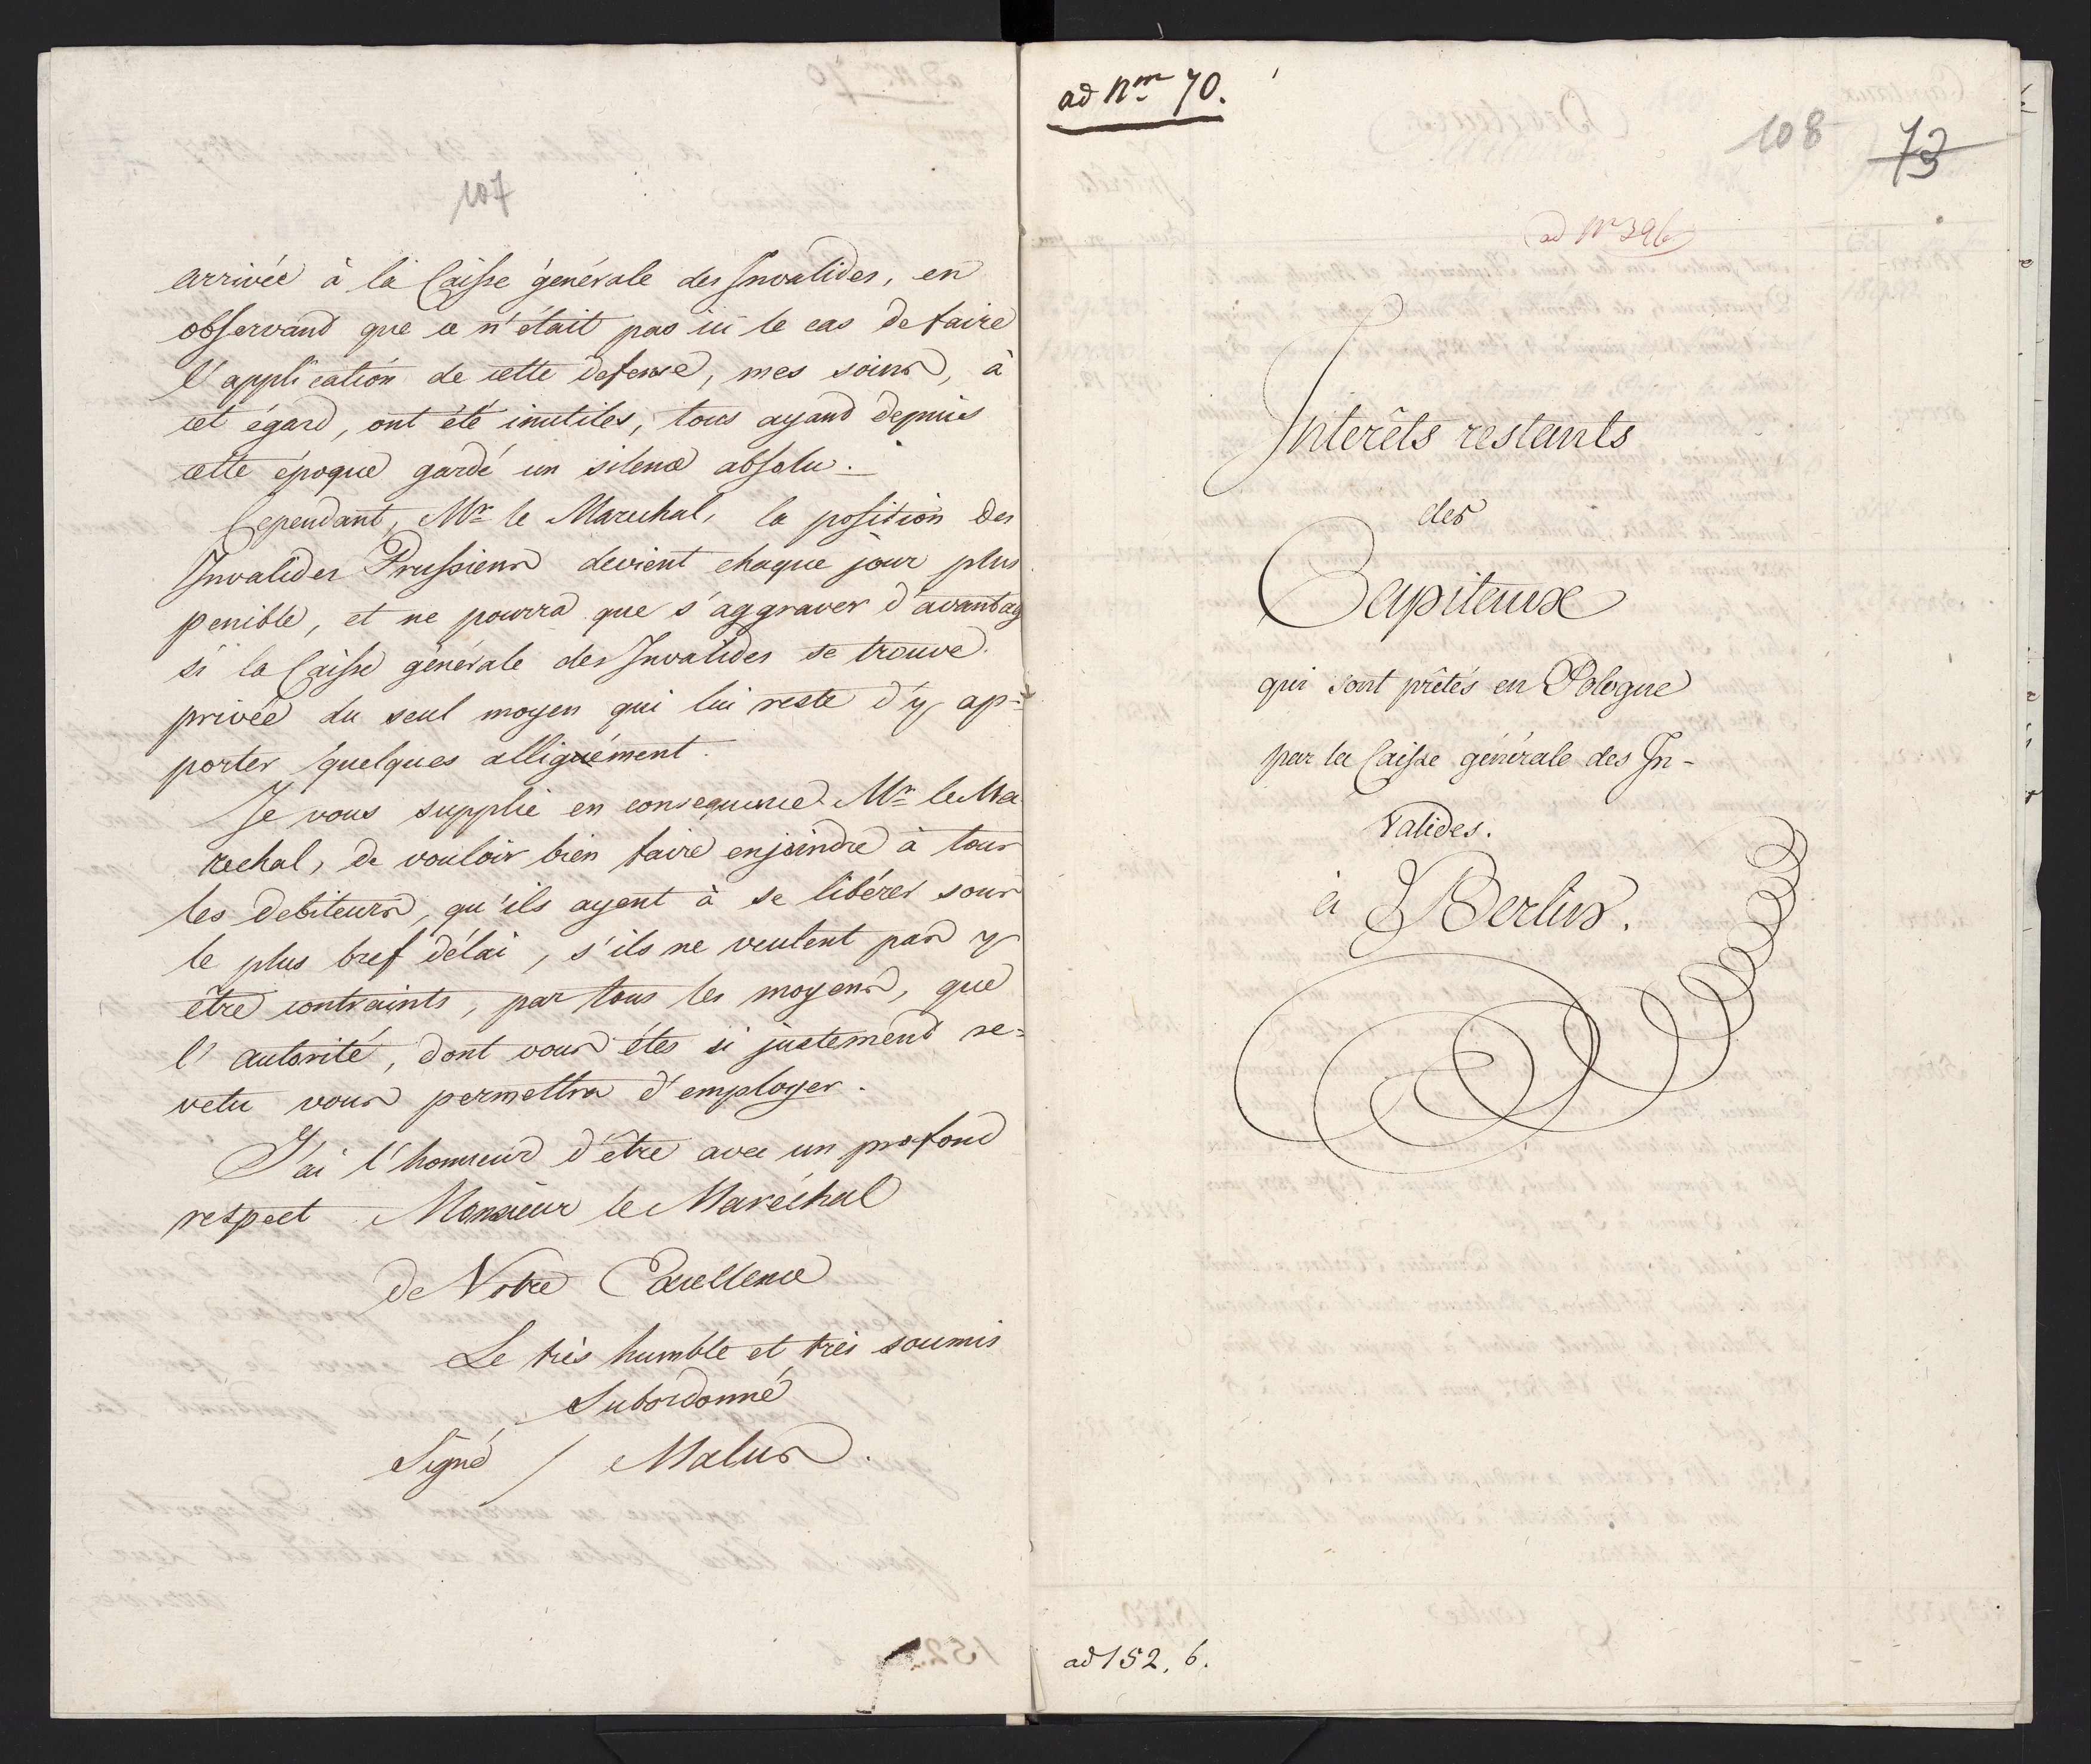 107
arrivée à la Caisse générale des Invalides, en
observand que ce n'était pas ici le cas de faire
l'application de cette defense, mes soins, à
cet égard, ont été inutiles, tous ayand depuis
cette époque gardé un silence absolu.
Cependant, Mr le Marechal, la position des
Invalides Prussiens devient chaque jour plus
penible, et ne pourra que s'aggraver d'avantag
si la Caisse générale des Invalides se trouve
privée du seul moyen qui lui reste d'y ap=
porter quelques alliguément.
Je vous supplie en consequence Mr le Ma
rechal, de vouloir bien faire enjoindre à tous
les debiteurs, qu'ils ayent à se libérer sous
le plus bref délai, s'ils ne veulent pas y
être contraints, par tous les moyens, que
l'autorité, dont vous êtes si justemend re=
vetu vous permettra d'employer.
J'ai l'honneur d'être avec un profond
respect Monsieur le Maréchal
de Votre Excellence
Le très humble et très soumis
Subordonné
Signé / Malus.
ad Nm 70.
108
73
ad Nr 396
Interêts restants
des
Capitaux
qui sont prêtés en Pologne
par la Caisse générale des In-
valides.
à Berlin.
ad 152. 6.